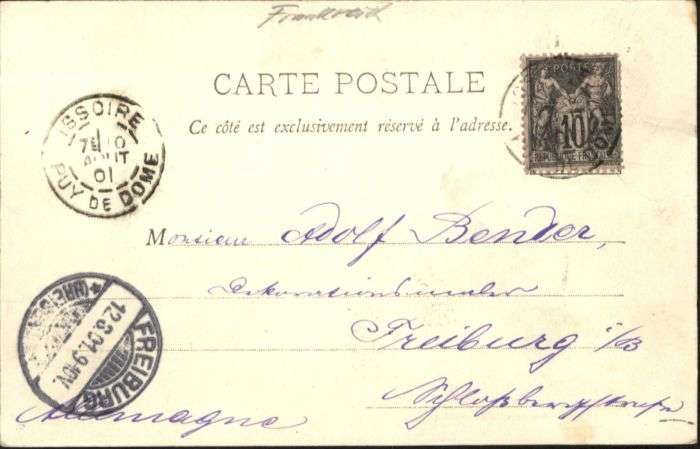 Frankreich
POSTES
CARTE POSTALE
10
Ce côté est exclusivement réservé à l'adresse.
ISSOIRE
7E 10
AOUT
01
PUY DE DOME
Monsieur Adolf Bender,
Dekorationsmaler
Freiburg i/B
Schloßbergstraße
Allemagne
FREIBURG
12.8.01.9-10V.